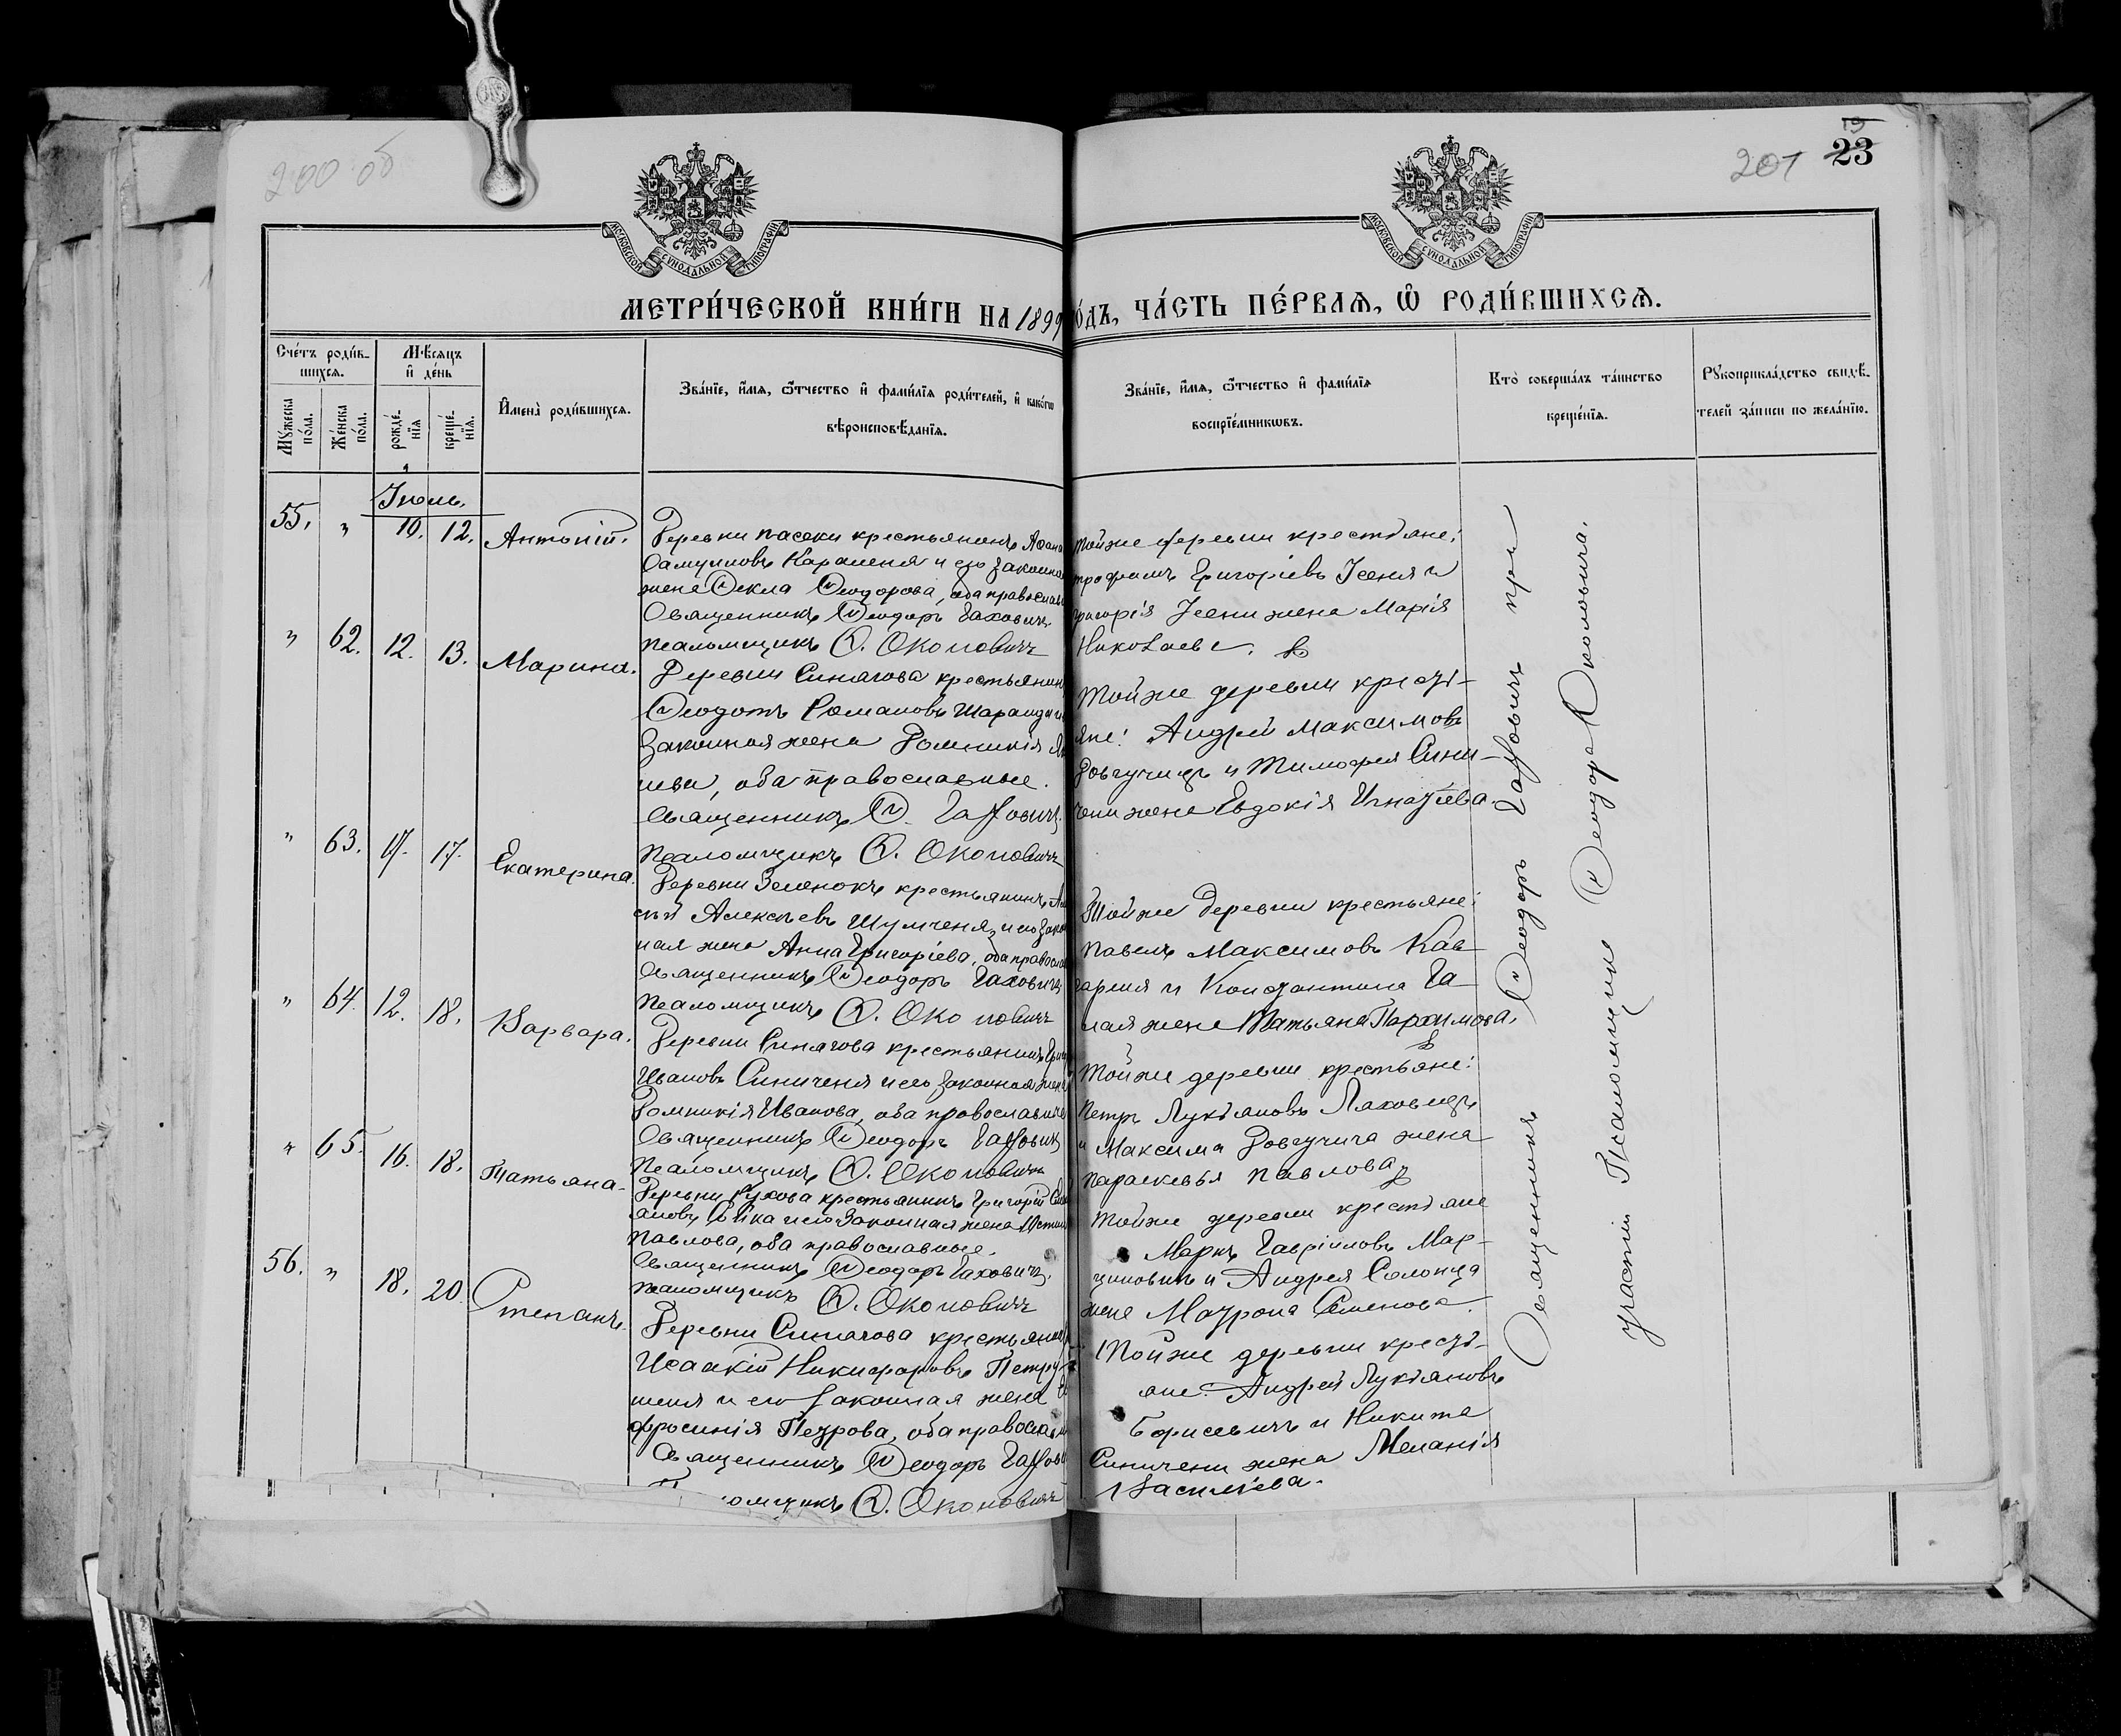 200 об
201
19
23
МОСКОВСКОЙ СѴНОДАЛЬНОЙ ТИПОГРАФІИ
МОСКОВСКОЙ СѴНОДАЛЬНОЙ ТИПОГРАФІИ
МЕТРИ́ЧЕСКОЙ КНИ́ГИ НА 1899
О́ДЪ, ЧА́СТЬ ПЕ́РВАѦ, Ѽ РОДИ́ВШИХСѦ.
Сче́тъ роди́в-
шихсѧ.
Мѣ́сѧцъ
и҆ де́нь
Мꙋ́жеска
по́ла.
Же́нска
по́ла.
рожде́-
нїѧ
креще́-
нїѧ.
И҆мена̀ роди́вшихсѧ.
Зва́нїе, и҆́мѧ, ѻ҆́тчество и҆ фами́лїѧ роди́телей, и҆ како́гѡ
вѣроисповѣ́данїѧ.
Зва́нїе, и҆́мѧ, ѻ҆́тчество и҆ фами́лїѧ
воспрїе́мникѡвъ.
Кто̀ соверша́лъ та́инство
креще́нїѧ.
Рꙋкоприкла́дство свидѣ́-
телей за́писи по жела́нїю.
Іюль.
55. " 10. 12. Антоній.
Деревни Пасеки крестьянинъ Афана
Самуиловъ Караленя и его законна
жена Ѳекла Ѳеодорова, оба православ
Священникъ Ѳеодоръ Гахович
Псаломщикъ Ѳ. Околовичъ
тойже деревни крестьяне:
трофимъ Григорьевъ Ісеня и
григорія Ісени жена Марія
Николаева.
" 62. 12. 13. Марина.
Деревни Синягова крестьянин
Ѳеодотъ Романовъ Шаранда и
законная жена Домникія
оба православные.
Священникъ Ѳ. Гахович
Псаломщикъ Ѳ. Околовичъ
Тойже деревни крестья-
яне: Андрей Максимовъ
Довгучицъ и Тимофея Сини-
чени жена Евдокія Игнатіева.
" 63. 17. Екатерина.
Деревни Зеленокъ крестьянинъ
сѣй Алексѣевъ Шулченя, и его закон
ная жена Анна Григоріева, оба правосла
Священникъ Ѳеодоръ Гахович
Псаломщикъ Ѳ. Околовичъ
Тойже деревни крестьяне:
Павелъ Максимовъ Кав-
гареня и Константина Га-
лая жена Татьяна Пархимова.
" 64. 12. 18. Варвара.
Деревни Синягова крестьянинъ Григ
Ивановъ Синиченя и его законная жена
Домникія Иванова, оба православные
Священникъ Ѳеодоръ Гахович
Псаломщикъ Ѳ. Околовичъ
Тойже деревни крестьяне:
Петръ Лукьяновъ Ляховецъ
и Максима Довгучица жена
Параскевья Павлова
" 65. 16. 18. Татьяна.
Деревни Рухова крестьянинъ Григорій
ановъ Бойка и его законная жена Устин
Павлова, оба православные.
Священникъ Ѳеодоръ Гахович
Псаломщикъ Ѳ. Околовичъ
Тойже деревни крестьяне
Маркъ Гавріиловъ Мар-
циновичъ и Андрея Солонца
жена Матрона Семенова.
56. " 18. 20. Степанъ.
Деревни Синягова крестьянин
Исаакій Никифоровъ Петру
шеня и его законная жена Е
фросинія Петрова, оба правосла
Священникъ Ѳеодоръ Гахови
омщикъ Ѳ. Околовичъ
Тойже деревни кресть-
яне: Андрей Лукьяновъ
Борисевичъ и Никита
Синичени жена Меланія
Васильева.
Священникъ Ѳеодоръ Гаховичъ при
участіи Псаломщика Ѳеодора Околовича.